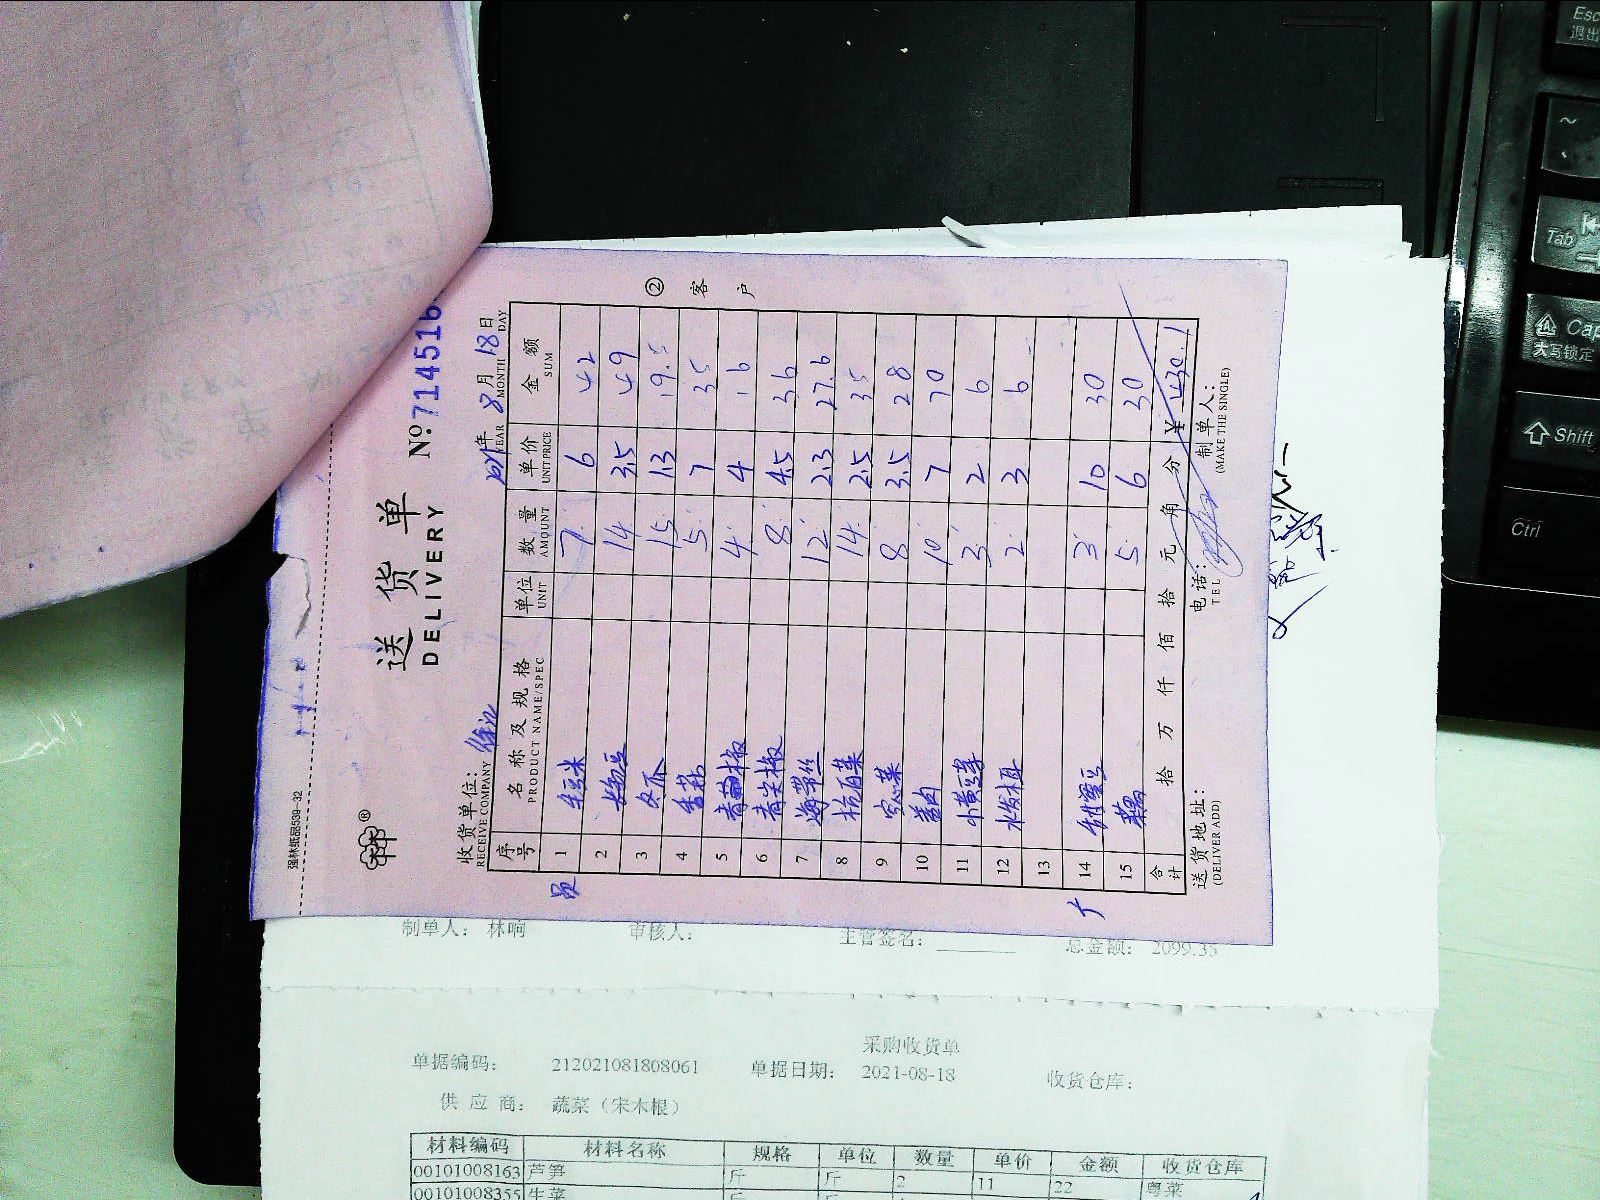 强林纸品539-32
送货单
DELIVERY
№714516
收货单位：
RECEIVE COMPANY
2021年 8月 18日
YEAR MONTH DAY
序号 名称及规格 单位 数量 单价 金额
PRODUCT NAME/SPEC UNIT AMOUNT UNIT PRICE SUM
1 毛豆米 7 6 42
2 长豇豆 14 3.5 49
3 冬瓜 15 1.3 19.5
4 香菇 5 7 35
5 4 4 16
6 青尖椒 8 4.5 36
7 海带丝 12 2.3 27.6
8 杭白菜 14 2.5 35
9 空心菜 8 3.5 28
10 10 7 70
11 小黄芽 3 2 6
12 水发木耳 2 3 6
13
14 甜蜜豆 3 10 30
15 莲藕 5 6 30
合计 拾 万 仟 佰 拾 元 角 分 ¥ 430.1
送货地址：
(DELIVER ADD)
电话：
TEL
制单人：
(MAKE THE SINGLE)
② 客户
制单人： 林响 审核人： 主管签名： 总金额： 2099.35
采购收货单
单据编码： 212021081808061 单据日期： 2021-08-18 收货仓库：
供应商： 蔬菜（宋木根）
材料编码 材料名称 规格 单位 数量 单价 金额 收货仓库
00101008163 芦笋 斤 斤 2 11 22 粤菜
00101008355 生菜
Esc
退出
~
Tab
Cap
大写锁定
Shift
Ctrl